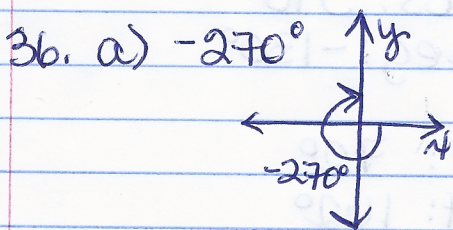 36. a) -270°
y
x
-270°